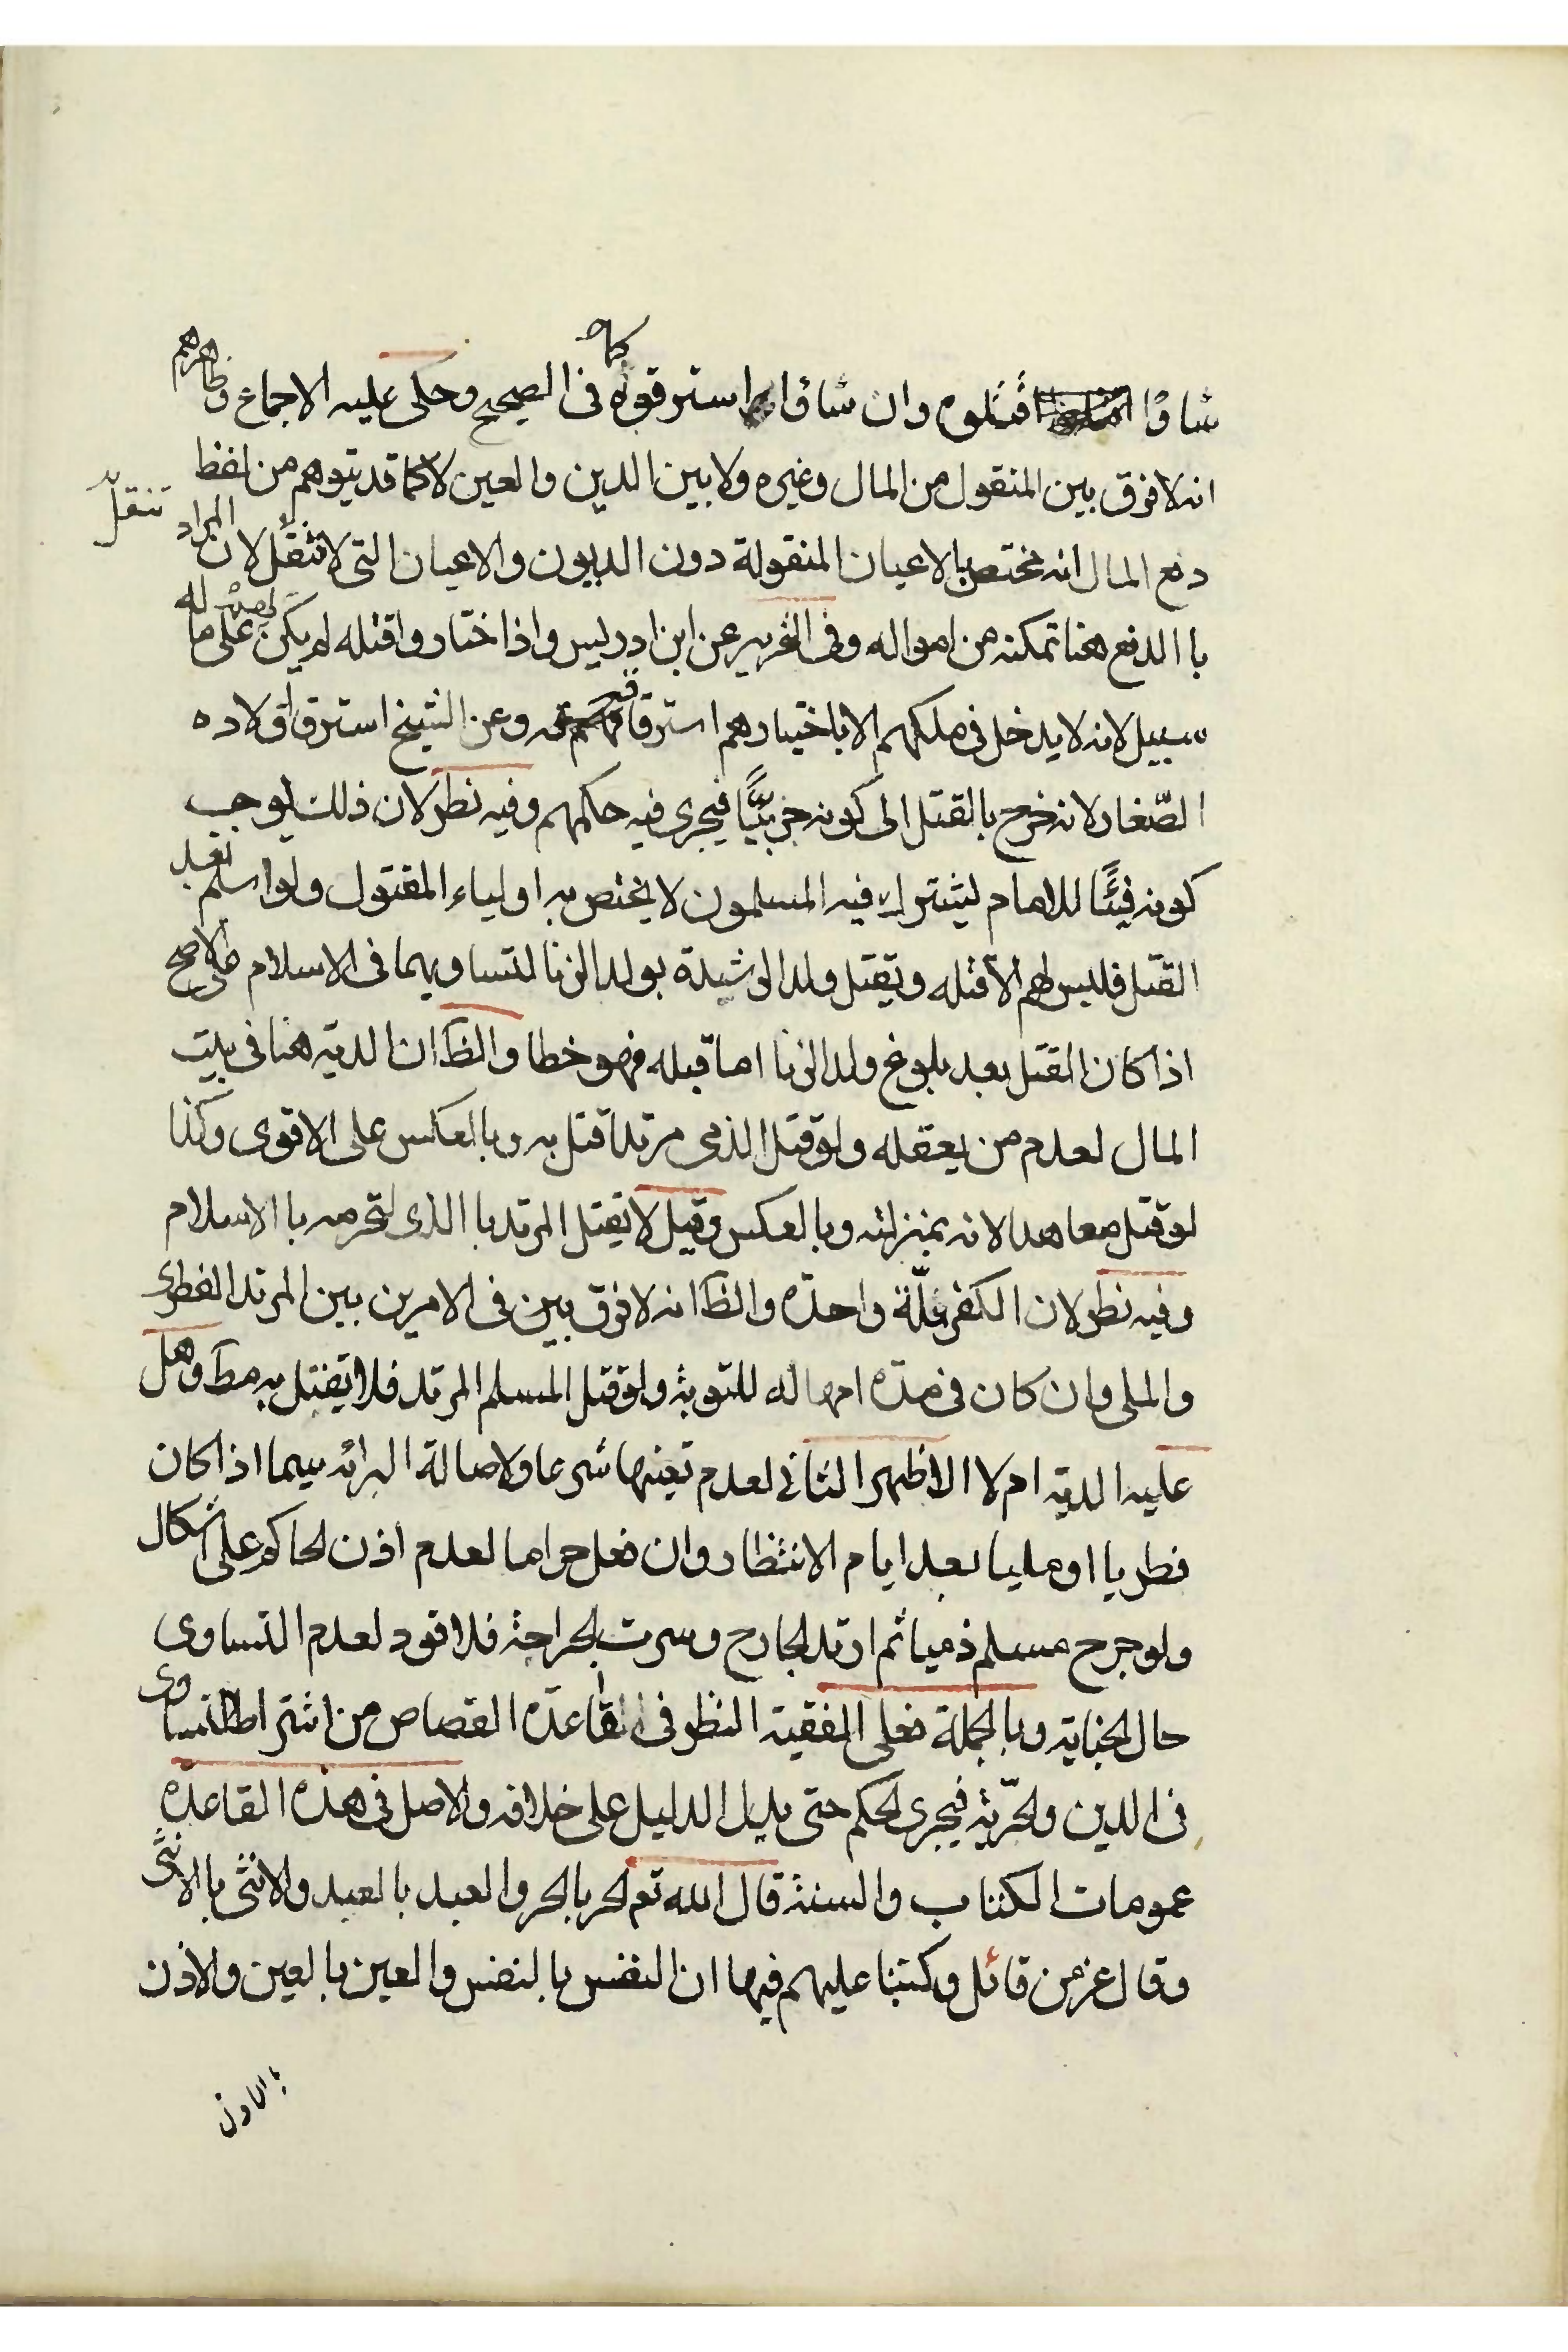 شاؤا اقتلوه وان شاؤا استرقوه كما فى الصحيح وحكى عليه الاجماع وظاهرهم
انه لا فرق بين المنقول من المال وغيره ولا بين الدين والعين لا كما قد يتوهم من لفظ
دفع المال انه مختص بالاعيان المنقولة دون الديون والاعيان التى لا تنقل لان المراد
تنقل
با الدفع هنا تمكنه من امواله وفى التحرير عن ابن ادريس واذا اختار واقتله لم يكن لهم على ماله
سبيل لانه لا يدخل فى ملكهم الا باختيارهم استرقاقه وعن الشيخ استرقاق اولاده
الصّغار لانه خرج بالقتل الى كونه حربيًّا فيجرى فيه حكمهم وفيه نظر لان ذلك يوجب
كونه فيئًا للامام ليشترك فيه المسلمون لا يختص به اولياء المقتول ولو اسلم بعد
القتل فليس لهم الا قتله ويقتل ولد الرشيدة بولد الزنا لتساويهما فى الاسلام على الاصح
اذا كان القتل بعد بلوغ ولد الزنا اما قبله فهو خطا والظ ان الدية هنا فى بيت
المال لعدم من يعقله ولو قتل الذمى مرتدا قتل به وبالعكس على الاقوى وكذا
لو قتل معاهدا لانه بمنزلته وبالعكس وقيل لا يقتل المرتد با الذى لتحرمه با الاسلام
وفيه نظر لان الكفر ملّة واحدّه والظ انه لا فرق بين فى الامرين بين المرتد الفطرى
والملى وان كان فى مدّه امهاله للتوبة ولو قتل المسلم المرتد فلا يقتل به مط وهل
عليه الدية ام لا الاظهر الثانى لعدم تعينها شرعا ولاصالة البرائه سيما اذا كان
فطريا او مليا بعد ايام الانتظار وان فعل حراما لعدم اذن الحاكم على اشكال
ولو جرح مسلم ذميا ثم ارتد الجارح وسرت الجراحة فلا قود لعدم التساوى
حال الجناية وبالجملة فعلى الفقيه النظر فى القاعدّه القصاص من اشتراط التساوى
فى الدين والحرّية فيجرى الحكم حتى يدل الدليل على خلافه والاصل فى هذه القاعدّه
عمومات الكتاب والسنة قال الله تعم الحر بالحر والعبد بالعبد والانثى بالانثى
وقال عز من قائل وكتبنا عليهم فيها ان النفس بالنفس والعين بالعين والاذن
بالاذن